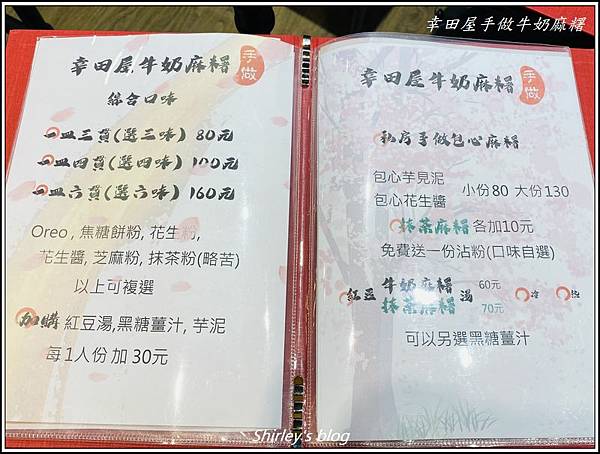 幸田屋手做牛奶麻糬
幸田屋.牛奶麻糬 手做
綜合口味
一皿三貫(選三味) 80元
一皿四貫(選四味) 100元
一皿六貫(選六味) 160元
Oreo , 焦糖餅粉, 花生粉,
花生醬, 芝麻粉, 抹茶粉(略苦)
以上可複選
加購 紅豆湯,黑糖薑汁, 芋泥
每1人份 加 30元
幸田屋牛奶麻糬 手做
私房手做包心麻糬
包心芋見泥
包心花生醬
小份80 大份130
抹茶麻糬 各加10元
免費送一份沾粉(口味自選)
紅豆 牛奶麻糬 湯 60元 冷 熱
抹茶麻糬 70元
可以另選黑糖薑汁
Shirley's blog